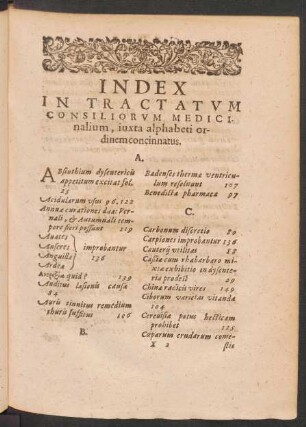 INDEX
IN TRACTATVM
CONSILIORVM MEDICI-
nalium, iuxta alphabeti or-
dinem concinnatus.
A.
ABsinthium dysentericis
appetitum excitat fol.
25
Acidularum usus 96, 122
Annuæ curationes duæ: Ver-
nali, & Autumnali tem-
pore fieri possunt 119
Anates
Anseres improbantur
Anguillæ 136
Ardea
quid? 139
Auditus læsionis causa
24
Auris tinnitus remedium
thuris suffitus 106
B.
Badenses thermæ ventricu-
lum resoluunt 127
Benedicta pharmaca 97
C.
Carbonum discretio 89
Carpiones improbantur 136
Cauterij vtilitas 18
Castæ cum rhabarbaro mi-
xtæ exhibitio in dysente-
ria prodest 29
China radicis vires 140
Ciborum varietas vitanda
104
Cereuisiæ potus hecticam
prohibet 125
Coparum crudarum come-
X 2 stio